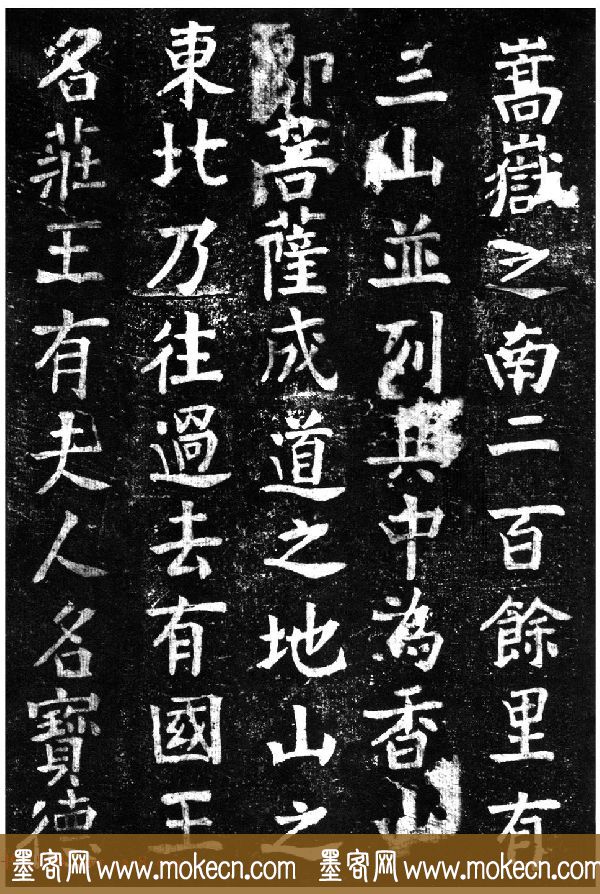 嵩嶽之南二百餘里有
三山並列其中為香山
即菩薩成道之地山之
東北乃往過去有國王
名莊王有夫人名寶德
墨客网 www.mokecn.com 墨客网 www.mokecn.com